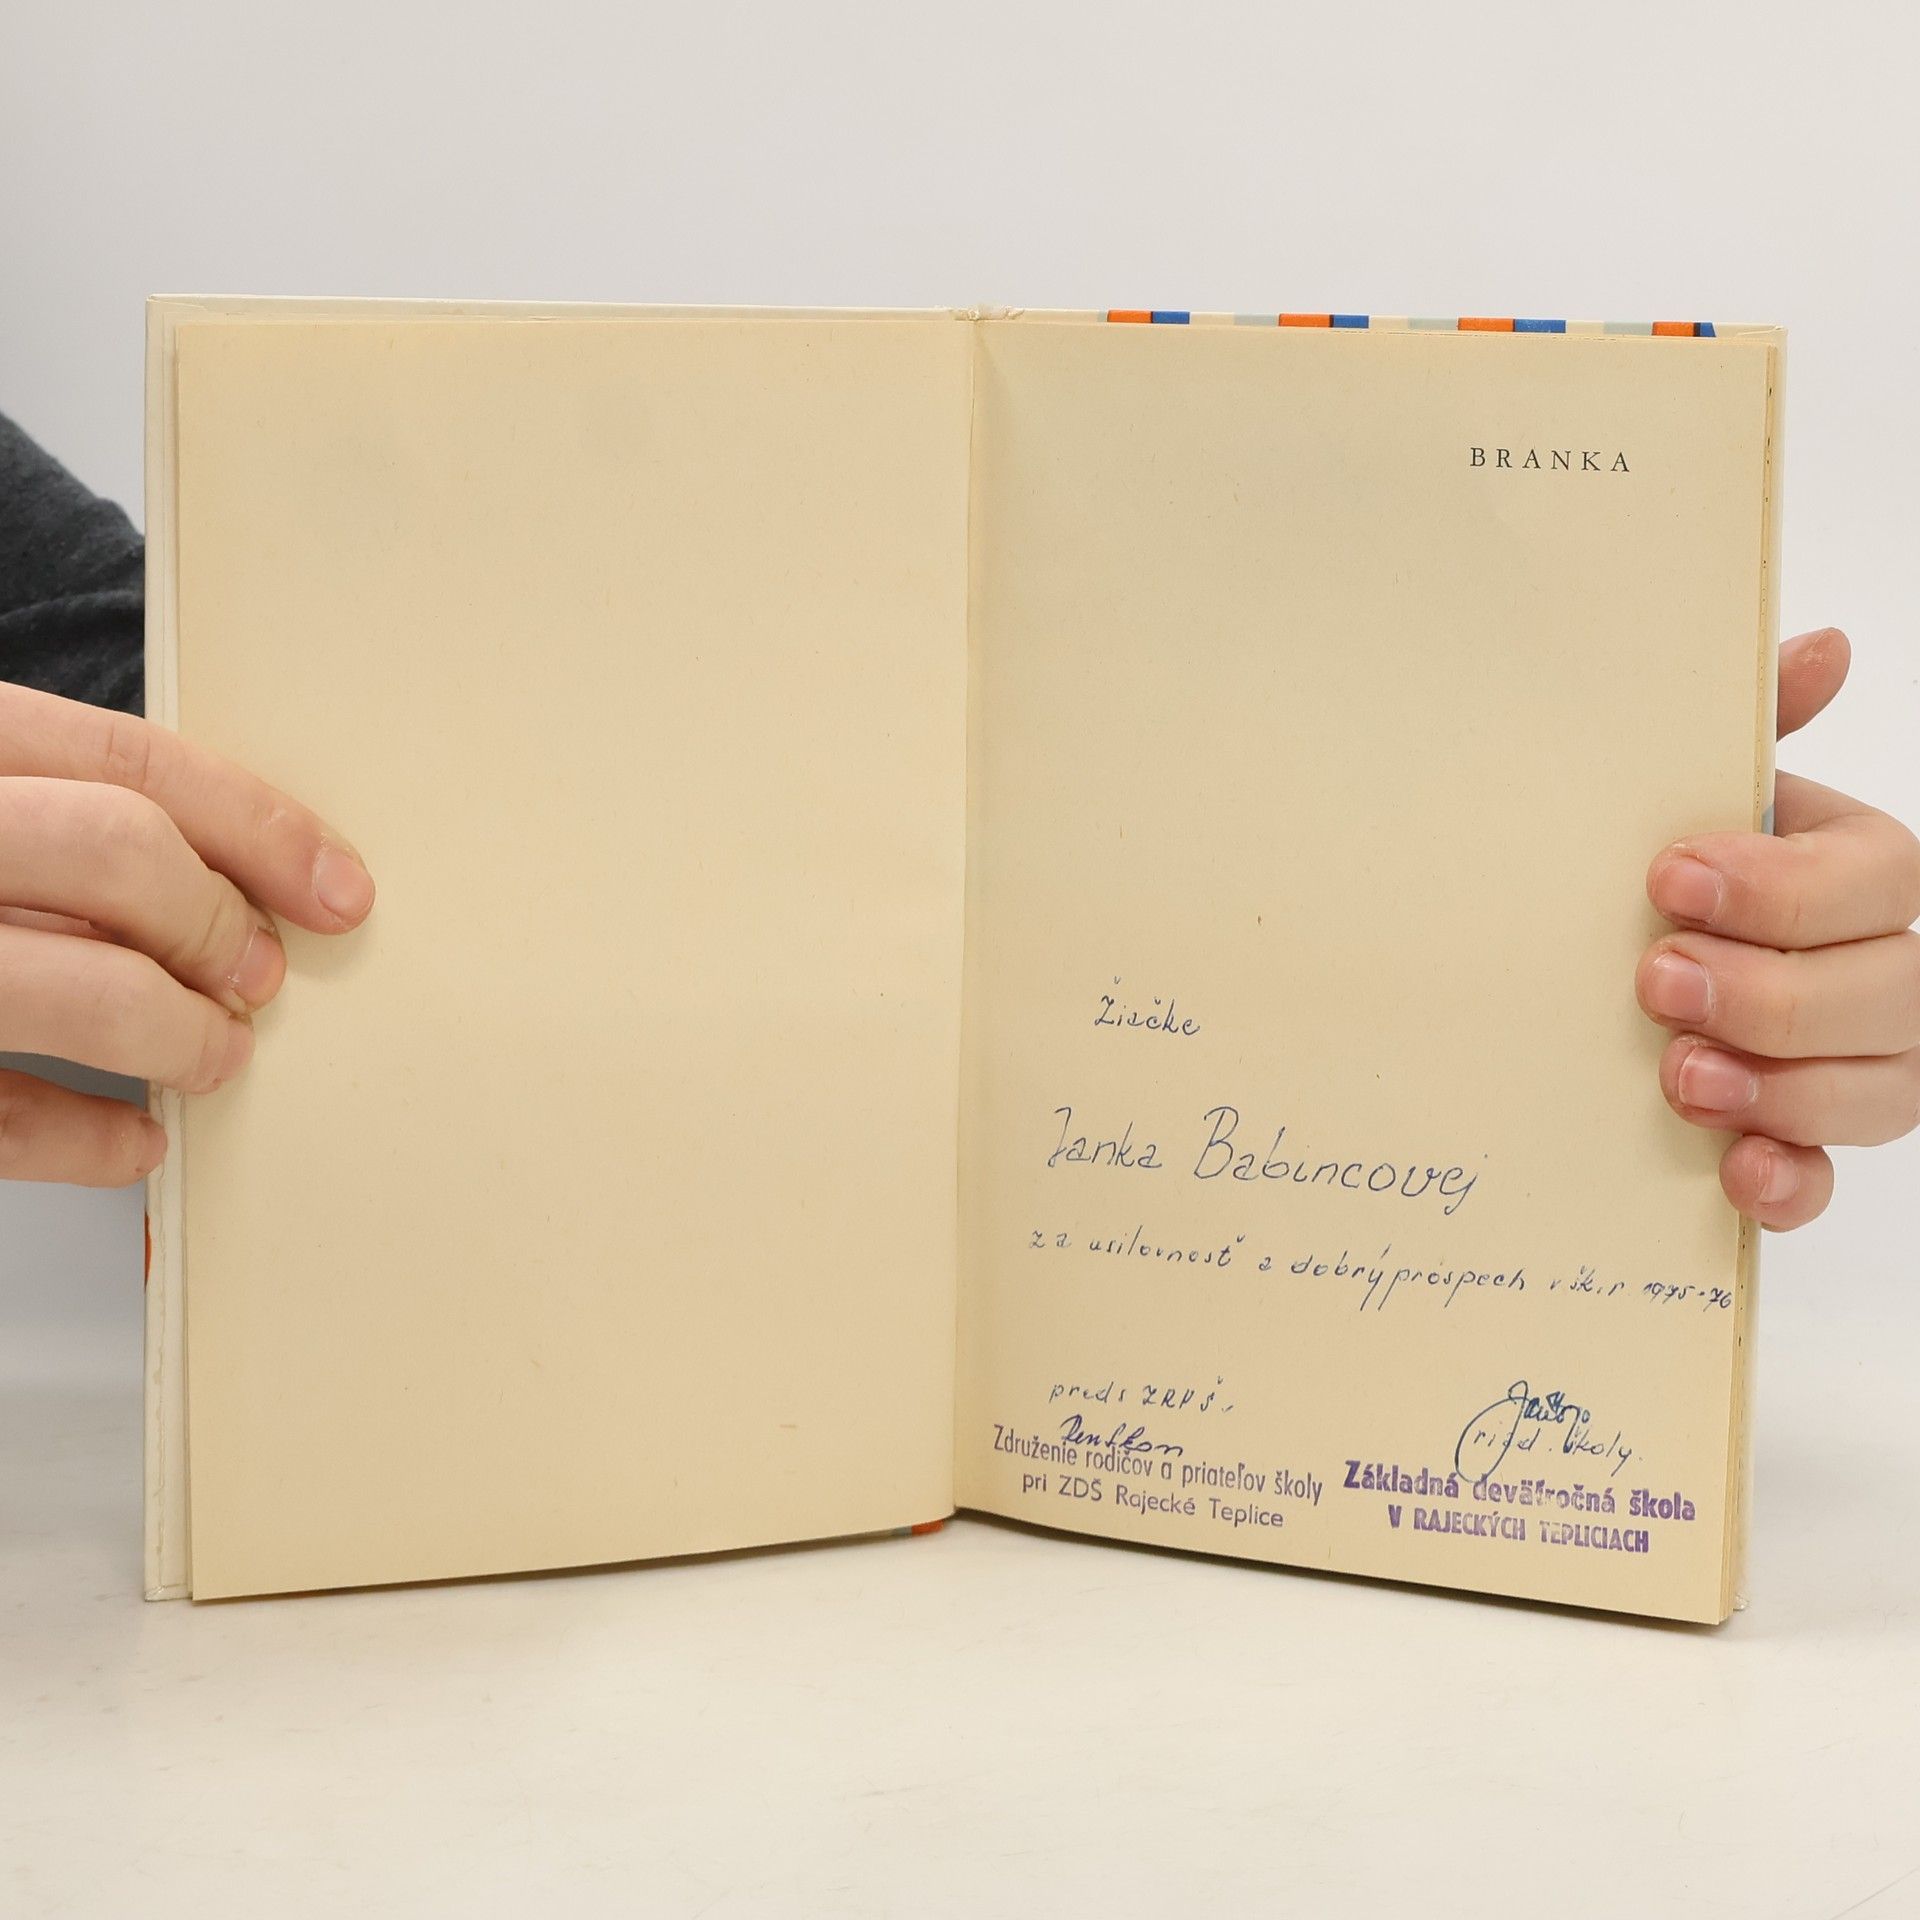 BRANKA
Žiačke
Janka Babincovej
za usilovnosť a dobrý prospech v šk. r. 1975-76
preds ZRPŠ.
Združenie rodičov a priateľov školy
pri ZDŠ Rajecké Teplice
riad. školy.
Základná deväťročná škola
V RAJECKÝCH TEPLICIACH